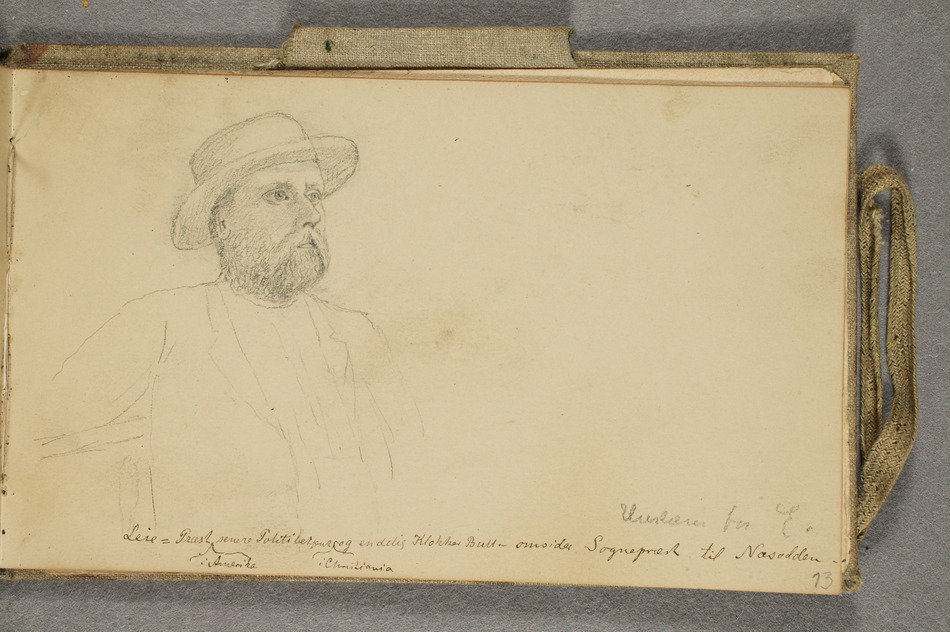 for E.
Leie = Præst, senere Politibetjent og endelig Klokker Bull – omsider Sognepræst til Næsodden –
i Amerika i Christiania
13